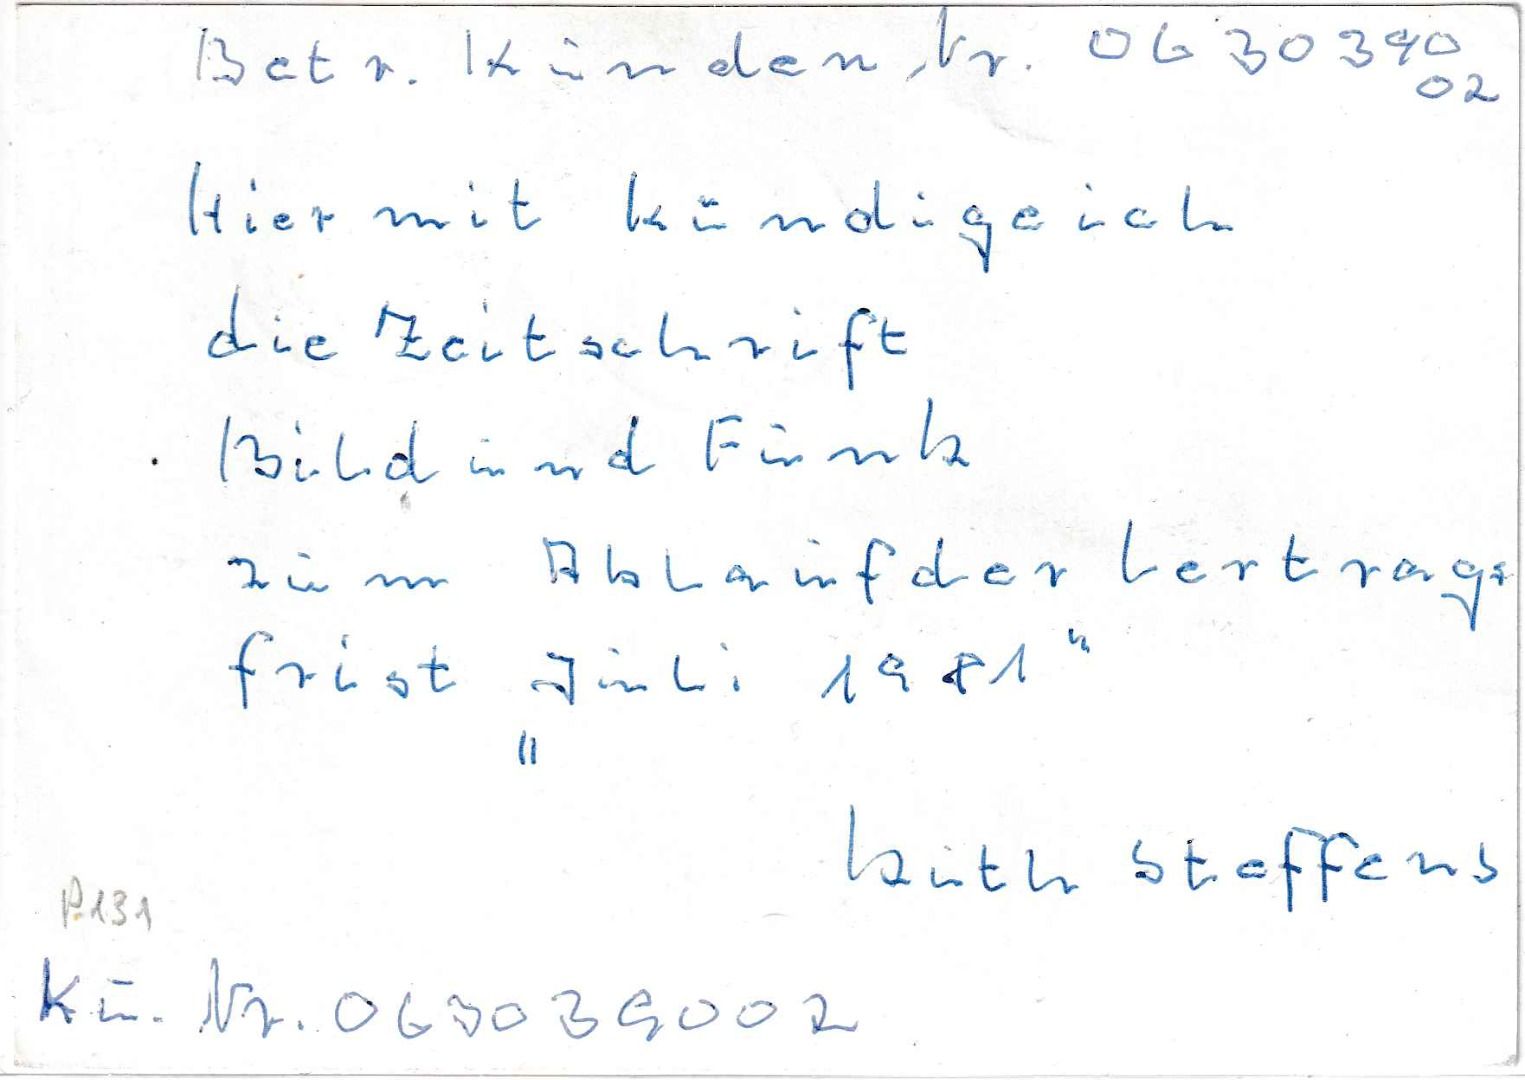 Betr. Kunden Nr. 0630390
02
Hiermit kündige ich
die Zeitschrift
Bild und Funk
zum Ablauf der Vertrags
frist "Juli 1981"
Ruth Steffens
P.131
Ku. Nr. 063039002